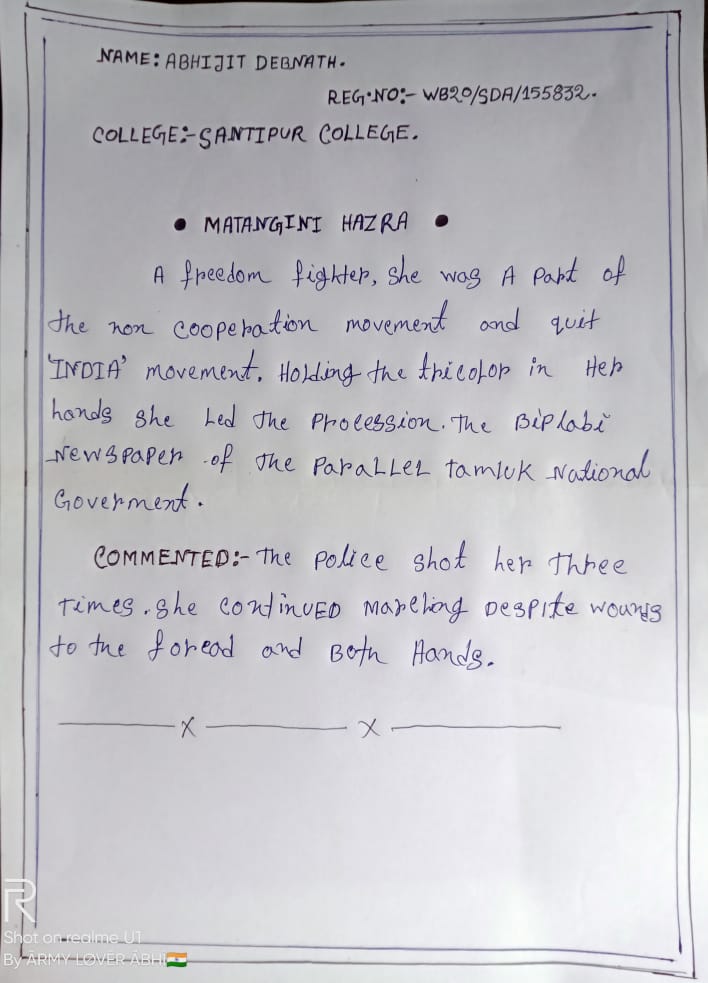 NAME: ABHIJIT DEBNATH.
REG.NO:- WB20/SDA/155832.
COLLEGE:- SANTIPUR COLLEGE.
• MATANGINI HAZRA •
A freedom fighter, she was A Part of
the non cooperation movement and quit
'INDIA' movement. Holding the tricolor in Her
hands she Led The Procession. The Biplabi
Newspaper of The ParaLLEL tamluk National
Goverment.
COMMENTED:- The police shot her Three
Times. She continuED Marching DESPITE wounds
to the foread and Both Hands.
x x
R
Shot on realme U1
By ĀRMY LOVER ĀBHI🇮🇳